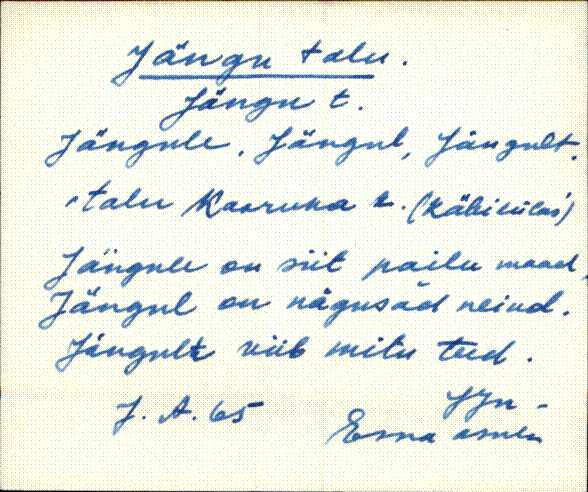 Jängu talu.
Jängu t.
Jängule, Jängul, Jängult.
talu Kaaruka k. (Käbiküla)
Jängule on siit pailu maad,
Jängul on nägusad neiud.
Jängult viib mitu teed.
J. A. 65
Jjn -
Erna